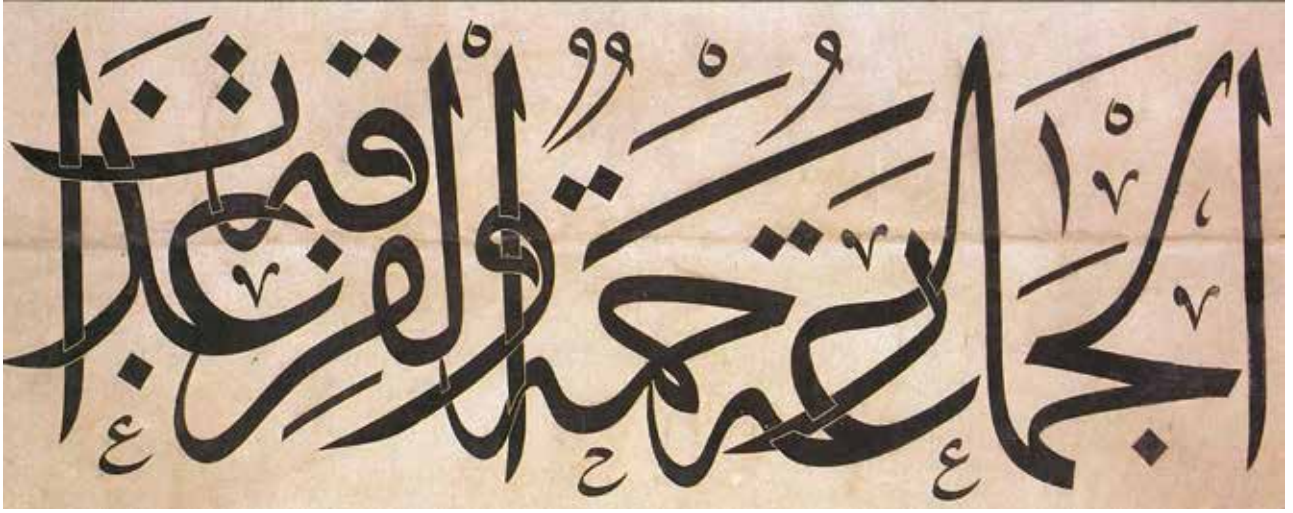 الجماعة رحمة والفرقة عذاب